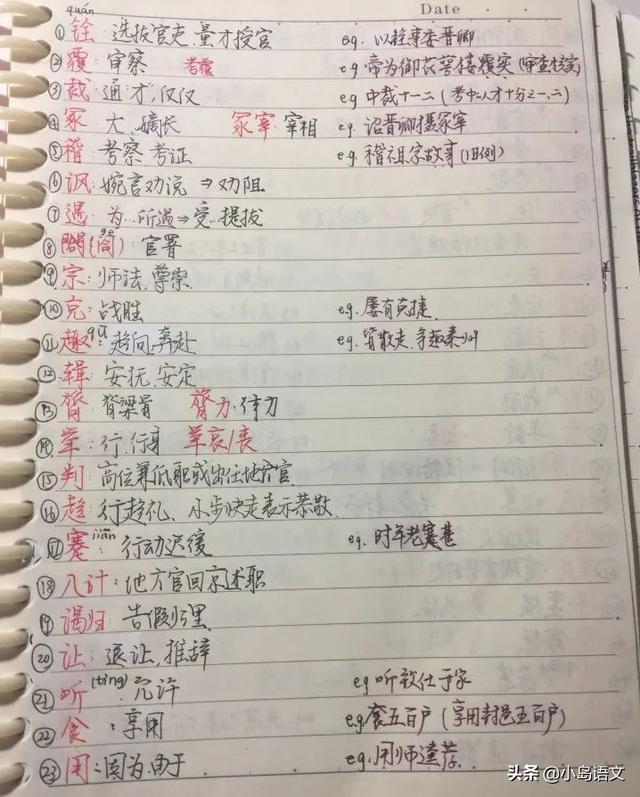 quán
Date
①铨: 选拔官吏,量才授官 eg. 以铨事委晋卿
②覆: 审察 考覆 eg. 帝为御花萼楼覆实(审查核实)
③裁: 通才,仅仅 eg 中裁十一二(考中人才十分之一、二)
④冢 大 嫡长 冢宰 宰相 eg. 诏晋卿摄冢宰
⑤稽: 考察 考证 eg. 稽祖宗故事(旧例)
⑥讽: 婉言劝说 ⇒ 劝阻
⑦遇: 为…所遇⇒受…提拔
⑧閤(阁) gé 官署
⑨宗: 师法,尊崇
⑩克: 战胜 eg. 屡有克捷
⑪趣 qū: 趋向,奔赴 eg. 皆散走,争趣秦州
⑫辑: 安抚,安定
⑬膂 脊梁骨 膂力,体力
⑭举: 行,行事 举哀/丧
⑮判: 高位兼低职或出任地方官
⑯趋: 行趋礼、小步快走表示恭敬
⑰蹇 jiǎn: 行动迟缓 eg. 时年老蹇甚
⑱入计: 地方官回京述职
⑲谒归: 告假归里
⑳让: 退让,推辞
㉑听(tīng): 允许 eg 听致仕于家
㉒食: 享用 eg.食五百户(享用封邑五百户)
㉓用: 因为,由于 eg. 用师逵荐
头条 @小岛语文